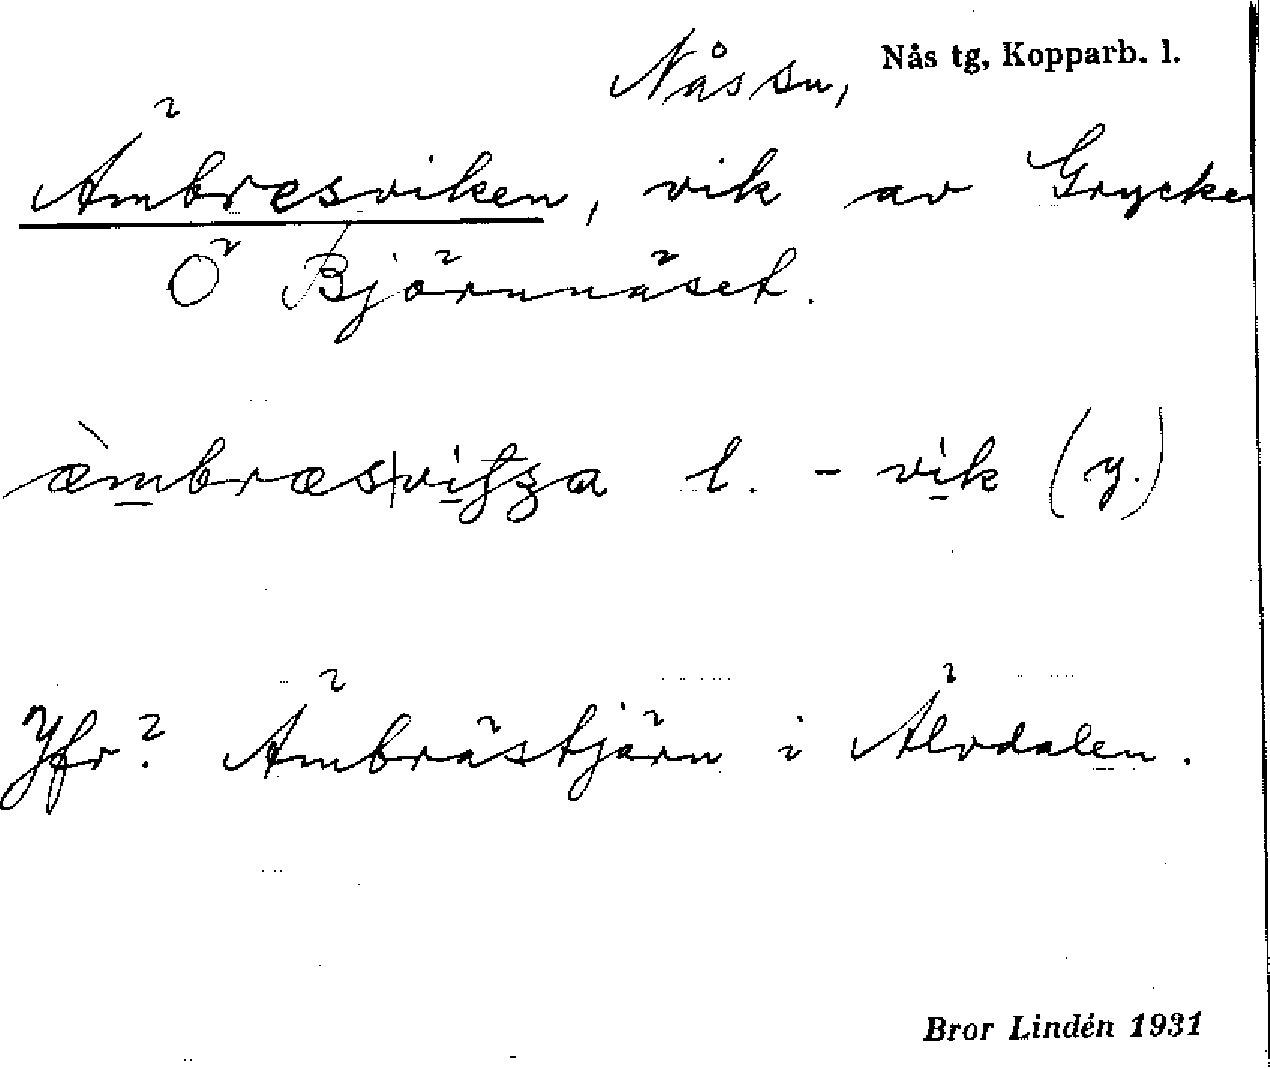 Nås sn, Nås tg, Kopparb. l.
Ämbresviken, vik av Grycken
Ö Björnnäset.
l. - vik (y.)
Jfr? Ämbrästjärn i Älvdalen.
Bror Lindén 1931